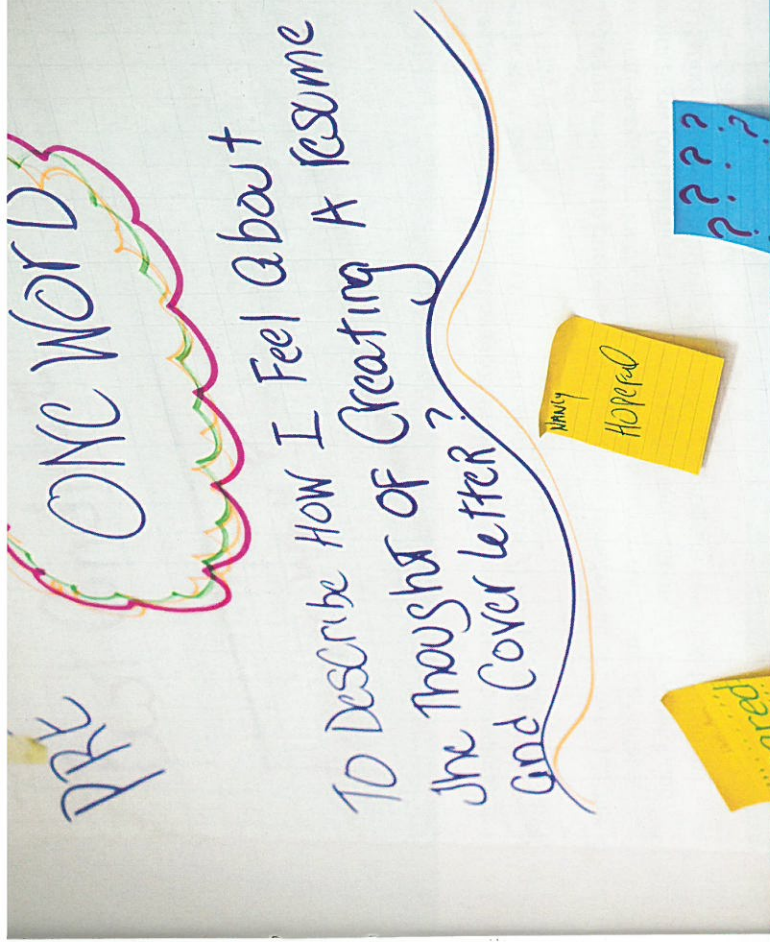 PRE
ONE WORD
To Describe How I Feel about
The Thought OF Creating A resume
and Cover letter?
NANCY
HOPEFUL
? ? ? ?
?